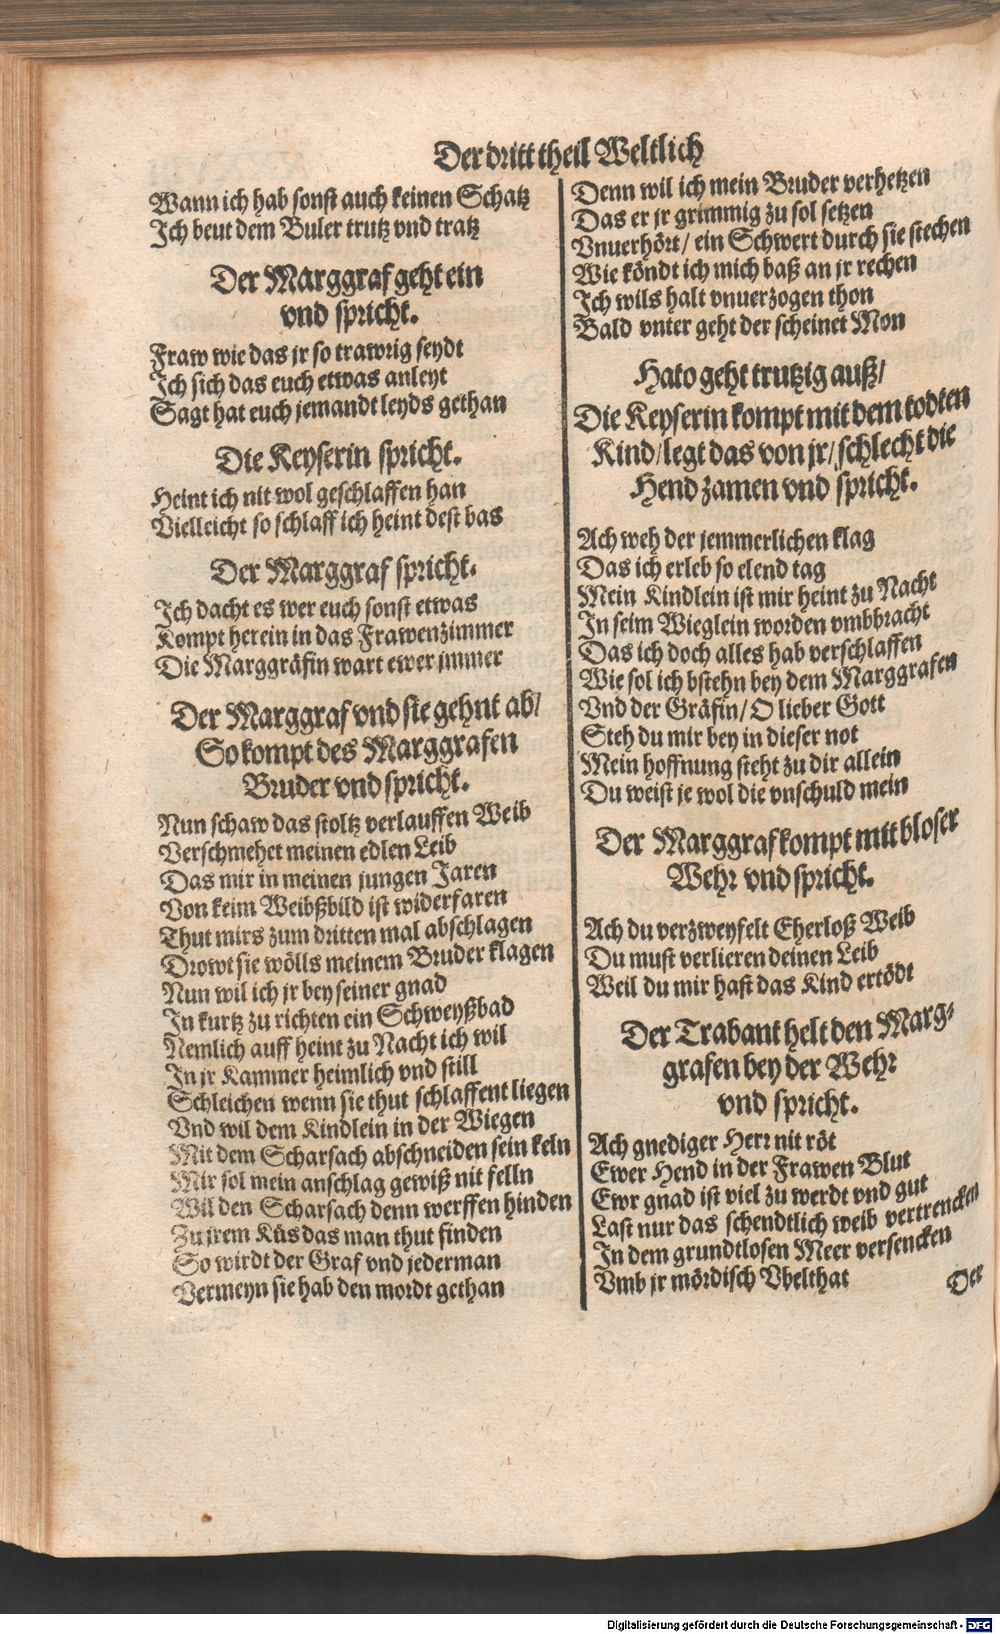 Der dritt theil Weltlich
Wann ich hab sonst auch keinen Schatz
Ich beut dem Buler trutz vnd tratz
Der Marggraf geht ein
vnd spricht.
Fraw wie das jr so trawrig seydt
Ich sich das euch etwas anleyt
Sagt hat euch jemandt leyds gethan
Die Keyserin spricht.
Heint ich nit wol geschlaffen han
Vielleicht so schlaff ich heint dest bas
Der Marggraf spricht.
Ich dacht es wer euch sonst etwas
Kompt herein in das Frawenzimmer
Die Marggräfin wart ewer jmmer
Der Marggraf vnd sie gehnt ab/
So kompt des Marggrafen
Bruder vnd spricht.
Nun schaw das stoltz verlauffen Weib
Verschmehet meinen edlen Leib
Das mir in meinen jungen Jaren
Von keim Weibßbild ist widerfaren
Thut mirs zum dritten mal abschlagen
Drowt sie wölls meinem Bruder klagen
Nun wil ich jr bey seiner gnad
In kurtz zu richten ein Schweyßbad
Nemlich auff heint zu Nacht ich wil
In jr Kammer heimlich vnd still
Schleichen wenn sie thut schlaffent liegen
Vnd wil dem Kindlein in der Wiegen
Mit dem Scharsach abschneiden sein keln
Mir sol mein anschlag gewiß nit feeln
Wil den Scharsach denn werffen hinden
Zu jrem Küs das man thut finden
So wirdt der Graf vnd jederman
Vermeyn sie hab den mordt gethan
Denn wil ich mein Bruder verhetzen
Das er jr grimmig zu sol setzen
Vnuerhört/ ein Schwert durch sie stechen
Wie köndt ich mich baß an jr rechen
Ich wils halt vnuerzogen thon
Bald vnter geht der scheinet Mon
Hato geht trutzig auß/
Die Keyserin kompt mit dem todten
Kind/ legt das von jr/ schlecht die
Hend zamen vnd spricht.
Ach weh der jemmerlichen klag
Das ich erleb so elend tag
Mein Kindlein ist mir heint zu Nacht
In seim Wieglein worden vmbbracht
Das ich doch alles hab verschlaffen
Wie sol ich bstehn bey dem Marggrafen
Vnd der Gräfin/ O lieber Gott
Steh du mir bey in dieser not
Mein hoffnung steht zu dir allein
Du weist je wol die vnschuld mein
Der Marggraf kompt mit bloser
Wehr vnd spricht.
Ach du verzweyfelt Eherloß Weib
Du must verlieren deinen Leib
Weil du mir hast das Kind ertödt
Der Trabant helt den Marg-
grafen bey der Wehr
vnd spricht.
Ach gnediger Herr nit röt
Ewer Hend in der Frawen Blut
Ewr gnad ist viel zu werdt vnd gut
Last nur das schendtlich weib vertrencken
In dem grundtlosen Meer versencken
Vmb jr mördisch Vbelthat
Der
Digitalisierung gefördert durch die Deutsche Forschungsgemeinschaft - DFG